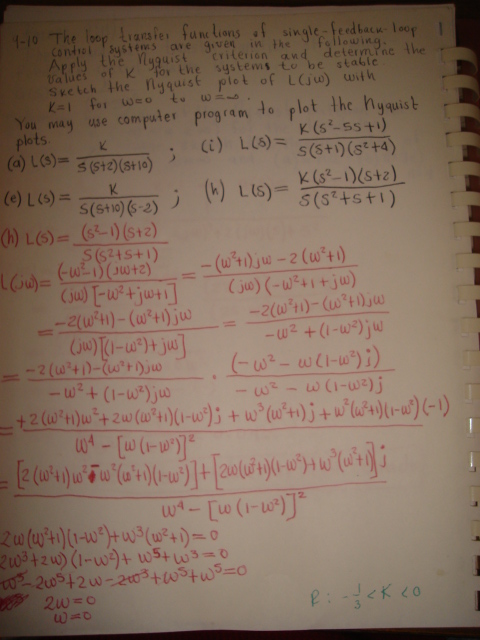 9-10 The loop transfer functions of single-feedback-loop
control systems are given in the following.
Apply the Nyquist criterion and determine the
values of K for the systems to be stable
Sketch the Nyquist plot of L(jω) with
K=1 for ω=0 to ω=∞.
You may use computer program to plot the Nyquist
plots.
(a) L(s)= K / S(S+2)(S+10) ; (i) L(s)= K(s²-5s+1) / S(S+1)(s²+4)
(e) L(s)= K / S(S+10)(S-2) ; (h) L(s)= K(s²-1)(s+2) / S(s²+s+1)
(h) L(s)= (s²-1)(s+2) / S(s²+s+1)
L(jω)= (-ω²-1)(jω+2) / (jω)[-ω²+jω+1] = -(ω²+1)jω-2(ω²+1) / (jω)(-ω²+1+jω)
= -2(ω²+1)-(ω²+1)jω / (jω)[(1-ω²)+jω] = -2(ω²+1)-(ω²+1)jω / -ω²+(1-ω²)jω
= -2(ω²+1)-(ω²+1)jω / -ω²+(1-ω²)jω · (-ω²-ω(1-ω²)j) / -ω²-ω(1-ω²)j
= +2(ω²+1)ω²+2ω(ω²+1)(1-ω²)j+ω³(ω²+1)j+ω²(ω²+1)(1-ω²)(-1) / ω⁴-[ω(1-ω²)]²
= [2(ω²+1)ω²-ω²(ω²+1)(1-ω²)]+[2ω(ω²+1)(1-ω²)+ω³(ω²+1)]j / ω⁴-[ω(1-ω²)]²
2ω(ω²+1)(1-ω²)+ω³(ω²+1)=0
2ω³+2ω)(1-ω²)+ω⁵+ω³=0
-2ω⁵+2ω-2ω³+ω⁵+ω⁵=0
2ω=0
ω=0
R: -1/3<K<0